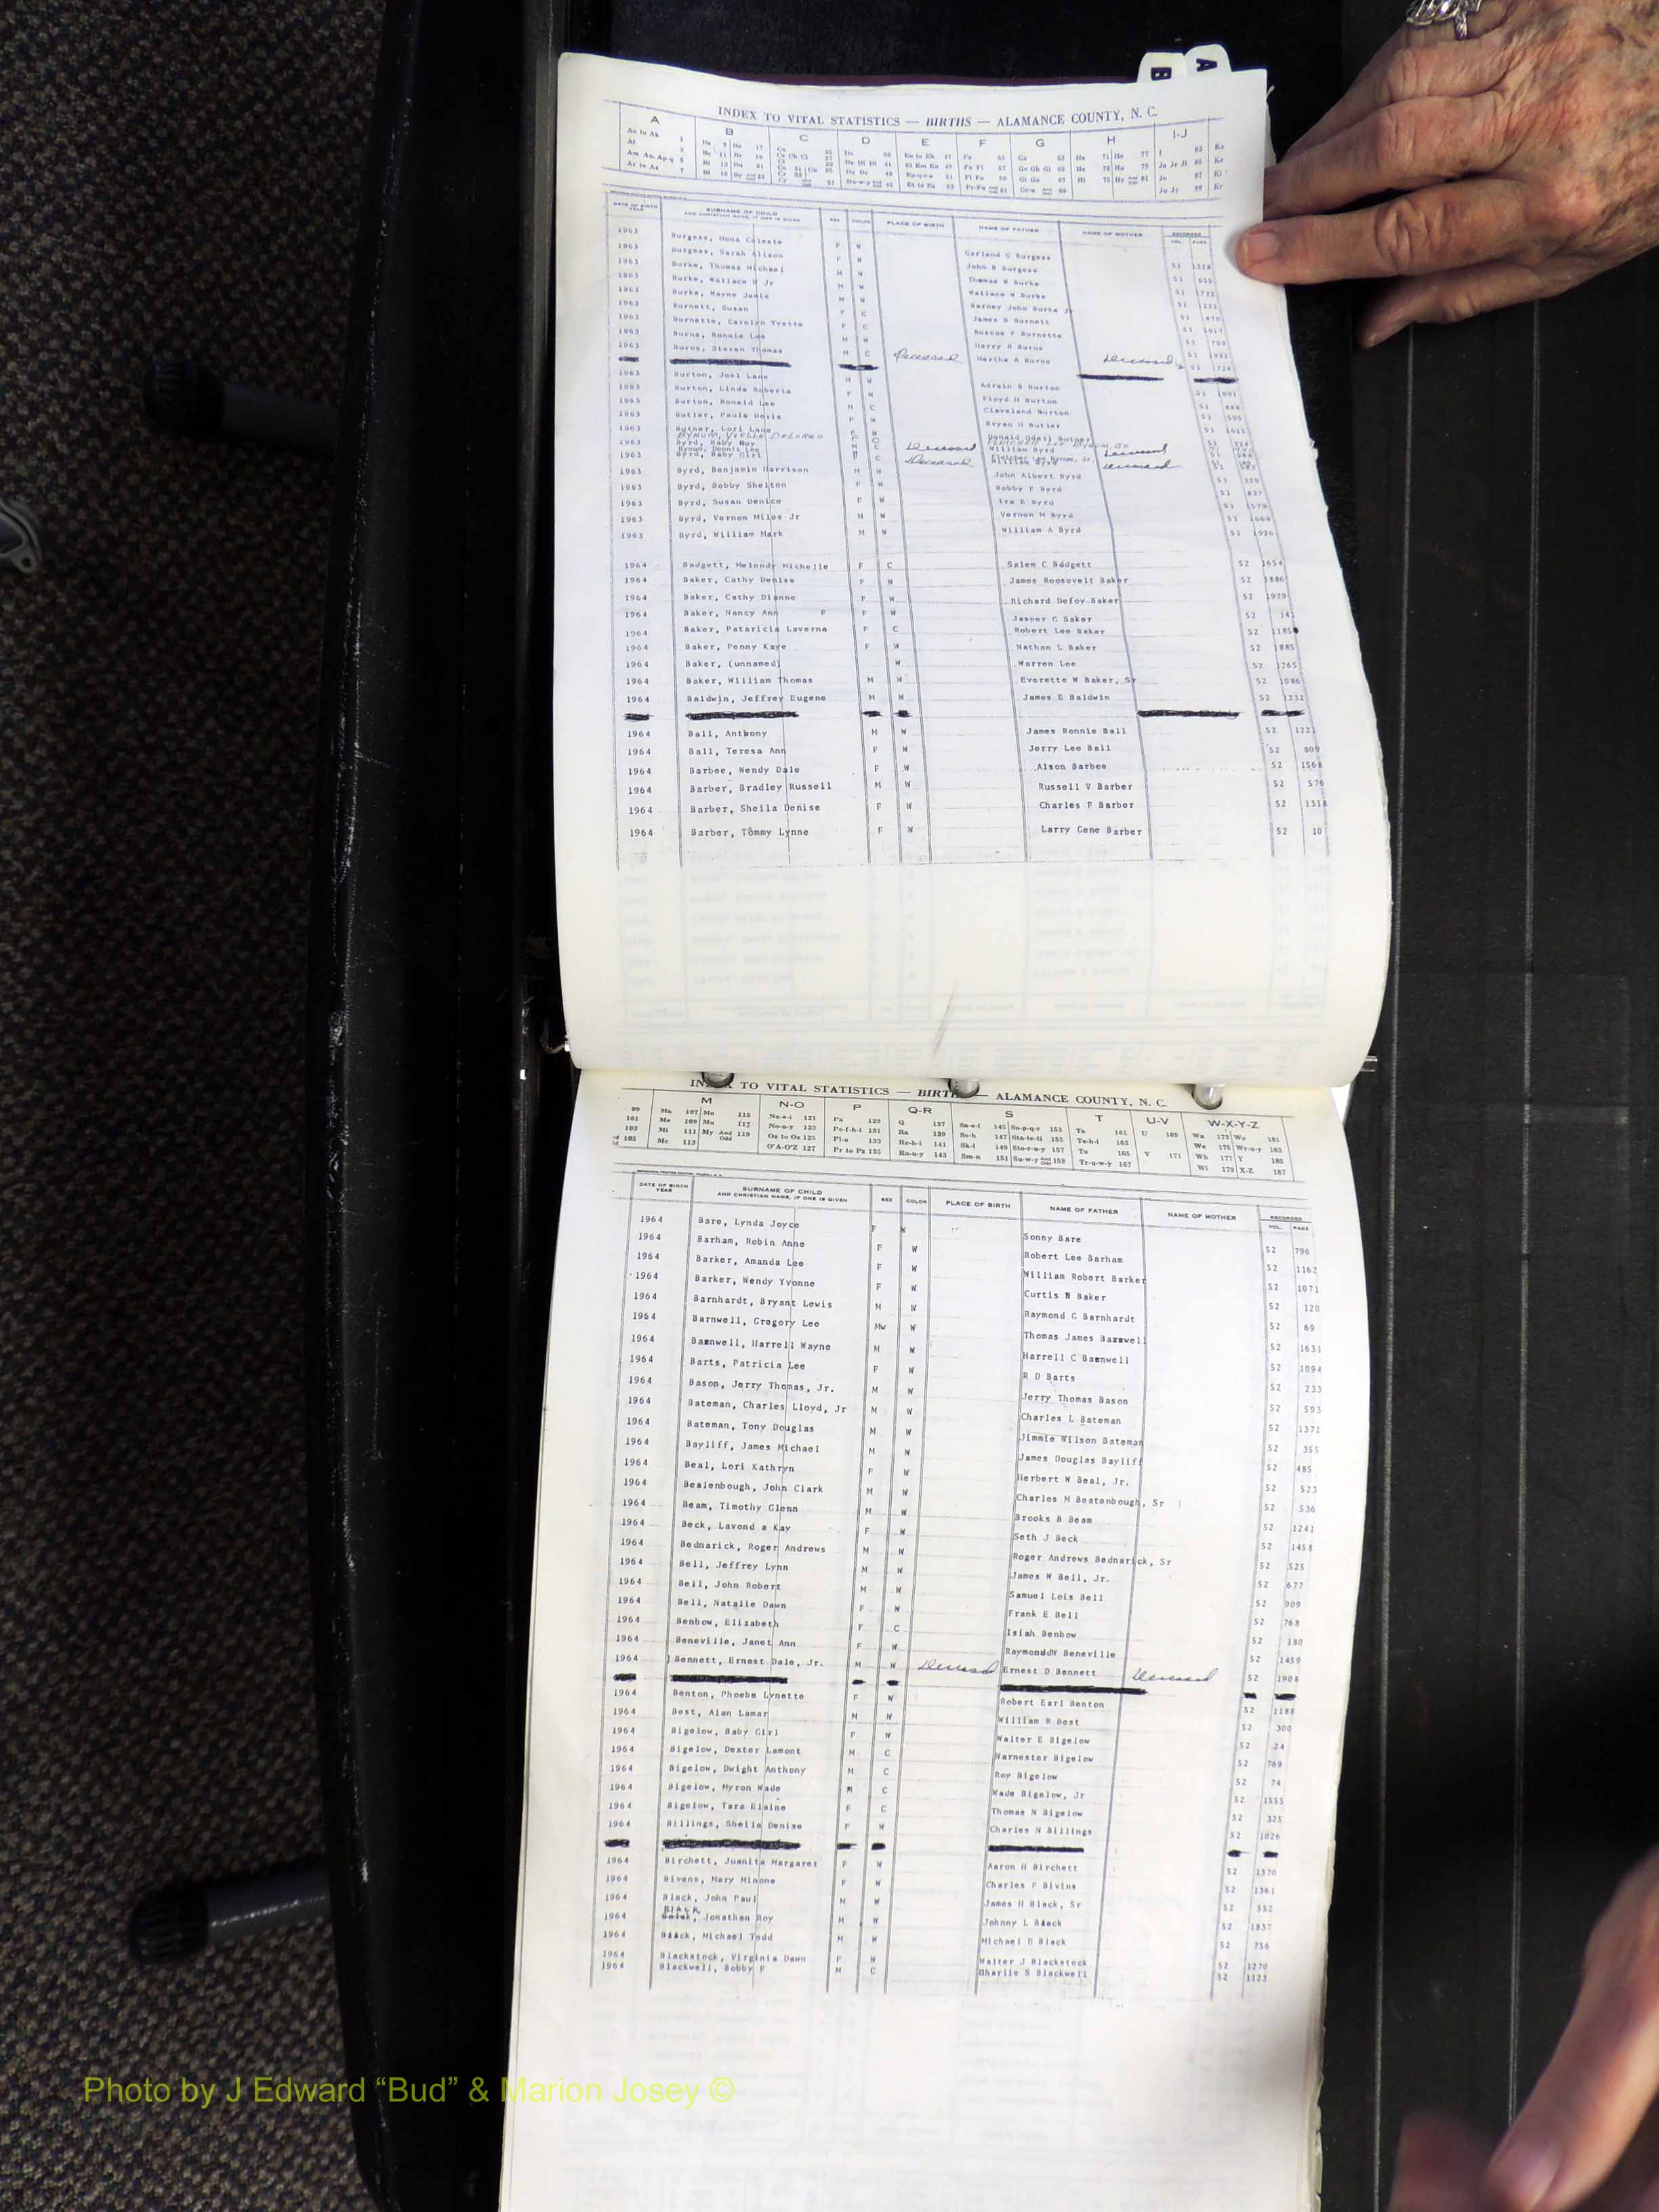 B
A
INDEX TO VITAL STATISTICS — BIRTHS — ALAMANCE COUNTY, N. C.
A B C D E F G H I-J
DATE OF BIRTH YEAR SURNAME OF CHILD AND CHRISTIAN NAME, IF ONE IS GIVEN SEX COLOR PLACE OF BIRTH NAME OF FATHER NAME OF MOTHER RECORDED VOL. PAGE
1963 Burgess, Mona Celeste F W Garland G Burgess 51 1328
1963 Burgess, Sarah Alison F W John R Burgess 51 655
1963 Burke, Thomas Michael M W Thomas W Burke 51 1722
1963 Burke, Wallace W Jr M W Wallace W Burke 51
1963 Burke, Wayne Jamie M W Barney John Burke Jr 51
1963 Burnett, Susan F C James B Burnett 51
1963 Burnette, Carolyn Yvette F C Roscoe F Burnette 51 709
1963 Burns, Ronnie Lee M W Harry R Burns 51
1963 Burns, Steven Thomas M C Deceased Martha A Burns Deceased 51 724
1963 Burton, Joel Lane M W Adrain B Burton 51
1963 Burton, Linda Roberta F W Floyd H Burton 51
1963 Burton, Ronald Lee M C Cleveland Burton 51 505
1963 Butler, Paula Doris F W Bryan H Butler 51
Butner, Lori Lane F W Donald Odell Butner 51
BYNUM, YVETTE DELOREN FLETCHER LEE BYNUM JR
1963 Byrd, Baby Boy M C Deceased William Byrd Deceased
Bynum, Dennis Lee Fletcher Lee Bynum, Jr.
1963 Byrd, Baby Girl C Deceased William Byrd Deceased 51
1963 Byrd, Benjamin Harrison M W John Albert Byrd 51 320
1963 Byrd, Bobby Shelton F W Bobby F Byrd 51 827
1963 Byrd, Susan Denice F W Ira E Byrd 51 1579
1963 Byrd, Vernon Miles Jr M W Vernon M Byrd 51 1668
1963 Byrd, William Mark M W William A Byrd 51 1926
1964 Badgett, Melondy Michelle F C Salem C Badgett 52 1654
1964 Baker, Cathy Denise F W James Roosevelt Baker 52 1886
1964 Baker, Cathy Dianne F W Richard Defoy Baker 52 1929
1964 Baker, Nancy Ann F F W Jasper G Baker 52 14
1964 Baker, Pataricia Laverne F C Robert Lee Baker 52 1185
1964 Baker, Penny Kaye F W Nathan L Baker 52 885
1964 Baker, (unnamed) W Warren Lee 52 1265
1964 Baker, William Thomas M W Everette W Baker, Sr 52 1086
1964 Baldwin, Jeffrey Eugene M W James E Baldwin 52 1232
1964 Ball, Anthony M W James Ronnie Ball 52 1221
1964 Ball, Teresa Ann F W Jerry Lee Ball 52 809
1964 Barbee, Wendy Dale F W Alson Barbee 52 1568
1964 Barber, Bradley Russell M W Russell V Barber 52 576
1964 Barber, Sheila Denise F W Charles F Barber 52 1318
1964 Barber, Tommy Lynne F W Larry Gene Barber 52 10
TO VITAL STATISTICS — ALAMANCE COUNTY, N. C.
M N-O P Q-R S T U-V W-X-Y-Z
99 Ma 107 Mo 115 Na-e-i 121 Pa 129 Q 137 Sa-e-i 145 So-p-q-r 153 Ta 161 U 169 Wa 173 Wo 181
101 Me 109 Mu 117 No-u-y 123 Pe-f-h-i 131 Ra 139 Sc-h 147 Sta-te-ti 155 Te-h-i 163 We 175 Wr-u-y 183
103 Mi 111 My And Odd 119 Oa to Oz 125 Pl-o 133 Re-h-i 141 Sk-l 149 Sto-r-u-y 157 To 165 V 171 Wh 177 Y 185
105 Mc 113 O'A-O'Z 127 Pr to Pz 135 Ro-u-y 143 Sm-n 151 Su-w-y And Odd 159 Tr-u-w-y 167 Wi 179 X-Z 187
DATE OF BIRTH YEAR SURNAME OF CHILD AND CHRISTIAN NAME, IF ONE IS GIVEN SEX COLOR PLACE OF BIRTH NAME OF FATHER NAME OF MOTHER RECORDED VOL. PAGE
1964 Bare, Lynda Joyce F W Sonny Bare 52 796
1964 Barham, Robin Anne F W Robert Lee Barham 52 1162
1964 Barker, Amanda Lee F W William Robert Barker 52 1071
1964 Barker, Wendy Yvonne F W Curtis N Baker 52 120
1964 Barnhardt, Bryant Lewis M W Raymond G Barnhardt 52 69
1964 Barnwell, Gregory Lee Mw W Thomas James Barnwell 52 1631
1964 Barnwell, Harrell Wayne M W Harrell C Barnwell 52 1094
1964 Barts, Patricia Lee F W R D Barts 52 233
1964 Bason, Jerry Thomas, Jr. M W Jerry Thomas Bason 52 593
1964 Bateman, Charles Lloyd, Jr M W Charles L Bateman 52 1371
1964 Bateman, Tony Douglas M W Jimmie Wilson Bateman 52 355
1964 Bayliff, James Michael M W James Douglas Bayliff 52 485
1964 Beal, Lori Kathryn F W Herbert W Beal, Jr. 52 523
1964 Bealenbough, John Clark M W Charles M Beatenbough, Sr 52 536
1964 Beam, Timothy Glenn M W Brooks B Beam 52 1241
1964 Beck, Lavond a Kay F W Seth J Beck 52 1458
1964 Bednarick, Roger Andrews M W Roger Andrews Bednarick, Sr 52 525
1964 Bell, Jeffrey Lynn M W James W Bell, Jr. 52 677
1964 Bell, John Robert M W Samuel Lois Bell 52 909
1964 Bell, Natalie Dawn F W Frank E Bell 52 768
1964 Benbow, Elizabeth F C Isiah Benbow 52 180
1964 Beneville, Janet Ann F W Raymond W Beneville 52 1459
1964 Bennett, Ernest Dale, Jr. M W Deceased Ernest D Bennett Deceased 52 1908
1964 Benton, Phoebe Lynette F W Robert Earl Benton 52 1188
1964 Best, Alan Lamar M W William R Best 52 300
1964 Bigelow, Baby Girl F W Walter E Bigelow 52 24
1964 Bigelow, Dexter Lamont M C Warnester Bigelow 52 769
1964 Bigelow, Dwight Anthony M C Roy Bigelow 52 74
1964 Bigelow, Myron Wade M C Wade Bigelow, Jr 52 1555
1964 Bigelow, Tara Elaine F C Thomas N Bigelow 52 325
1964 Billings, Sheila Denise F W Charles N Billings 52 1026
1964 Birchett, Juanita Margaret F W Aaron H Birchett 52 1370
1964 Bivens, Mary Minone F W Charles F Bivins 52 1361
1964 Black, John Paul M W James H Black, Sr 52 552
BLACK
1964 Jonathan Roy M W Johnny L Black 52 1837
1964 Black, Michael Todd M W Michael D Black 52 756
1964 Blackstock, Virginia Dawn F W Walter J Blackstock 52 1270
1964 Blackwell, Bobby F M C Charlie S Blackwell 52 1123
Photo by J Edward “Bud” & Marion Josey ©